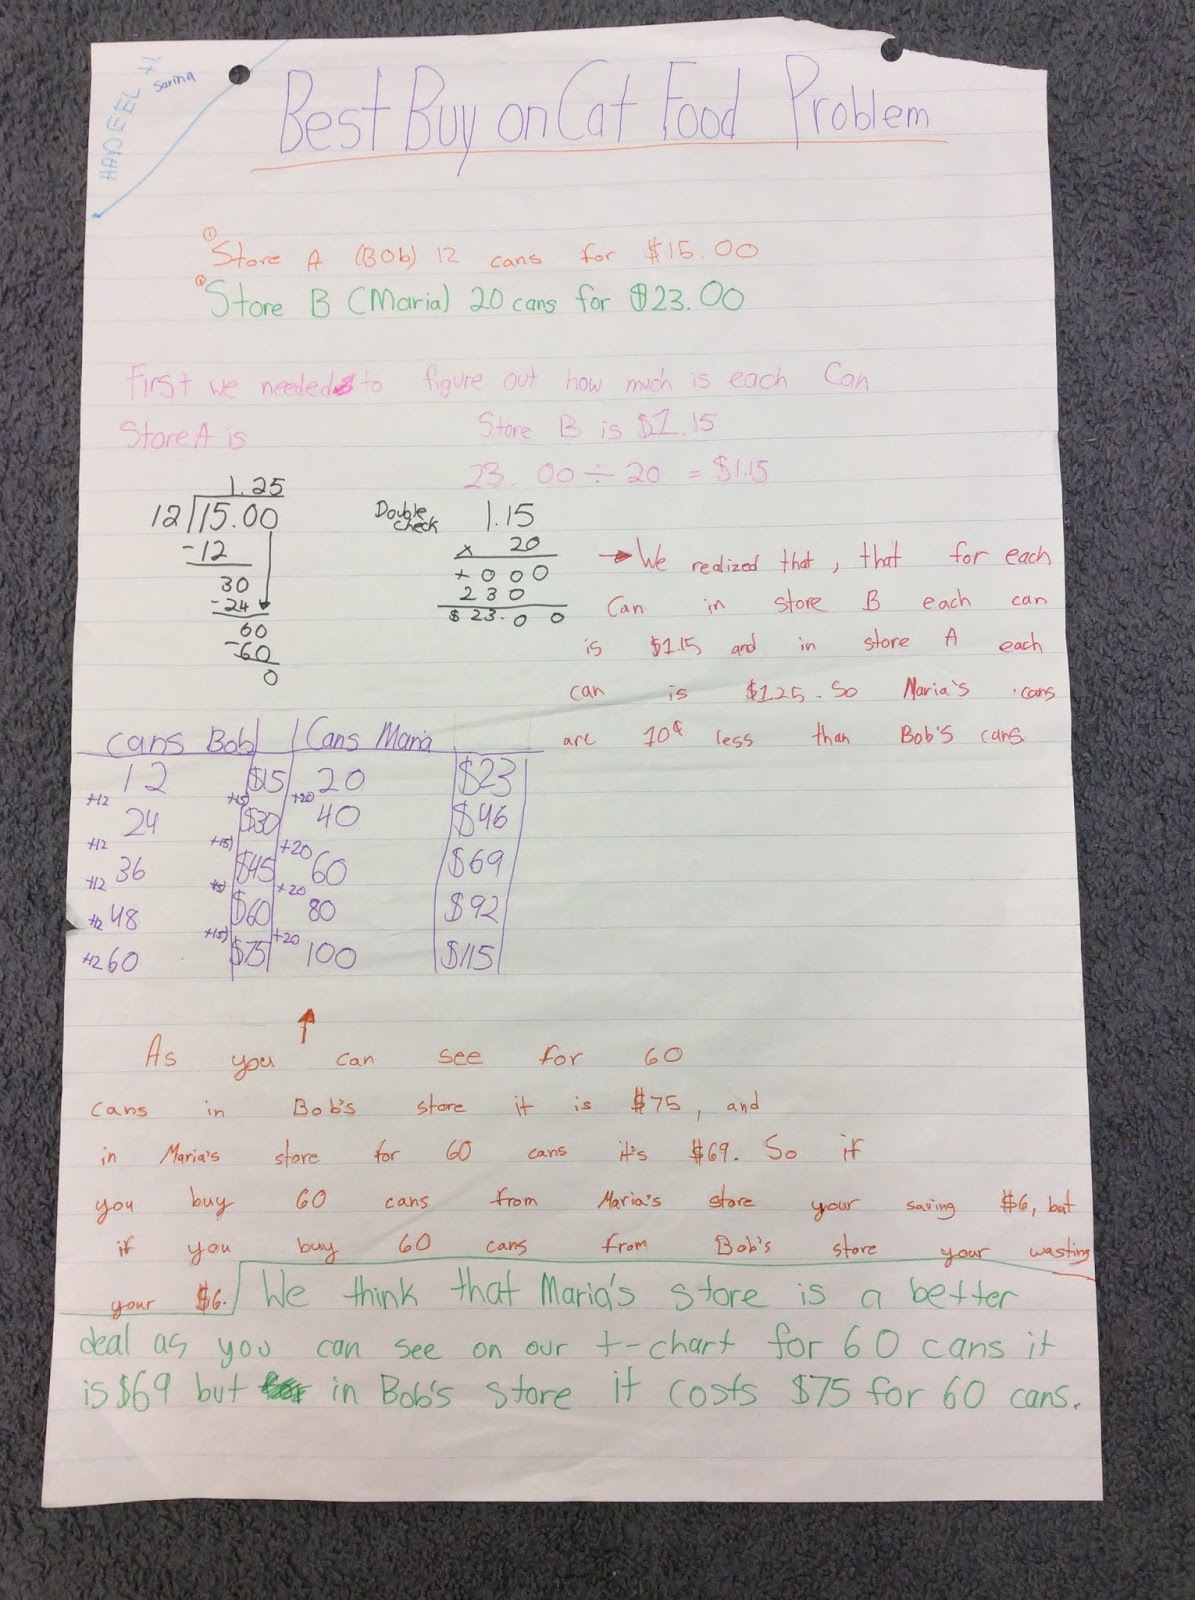 HADEEL H
Sarina
Best Buy on Cat Food Problem
① Store A (Bob) 12 cans for $15.00
② Store B (Maria) 20 cans for $23.00
First we needed to figure out how much is each Can
Store A is Store B is $1.15
23.00 ÷ 20 = $1.15
1.25
12 15.00
-12
30
-24
60
-60
0
Double check
1.15
x 20
+ 000
230
$ 23.00
→ We realized that, that for each
Can in store B each can
is $1.15 and in store A each
can is $1.25. So Maria's cans
are 10¢ less than Bob's cans
cans Bob Cans Maria
12 $15 20 $23
+12 +15 +20
24 $30 40 $46
+12 +15 +20
36 $45 60 $69
+12 +15 +20
48 $60 80 $92
+12 +15 +20
60 $75 100 $115
+12
As you can see for 60
cans in Bob's store it is $75, and
in Maria's store for 60 cans it's $69. So if
you buy 60 cans from Maria's store your saving $6, but
if you buy 60 cans from Bob's store your wasting
your $6.
We think that Maria's store is a better
deal as you can see on our t-chart for 60 cans it
is $69 but in Bob's store it costs $75 for 60 cans.